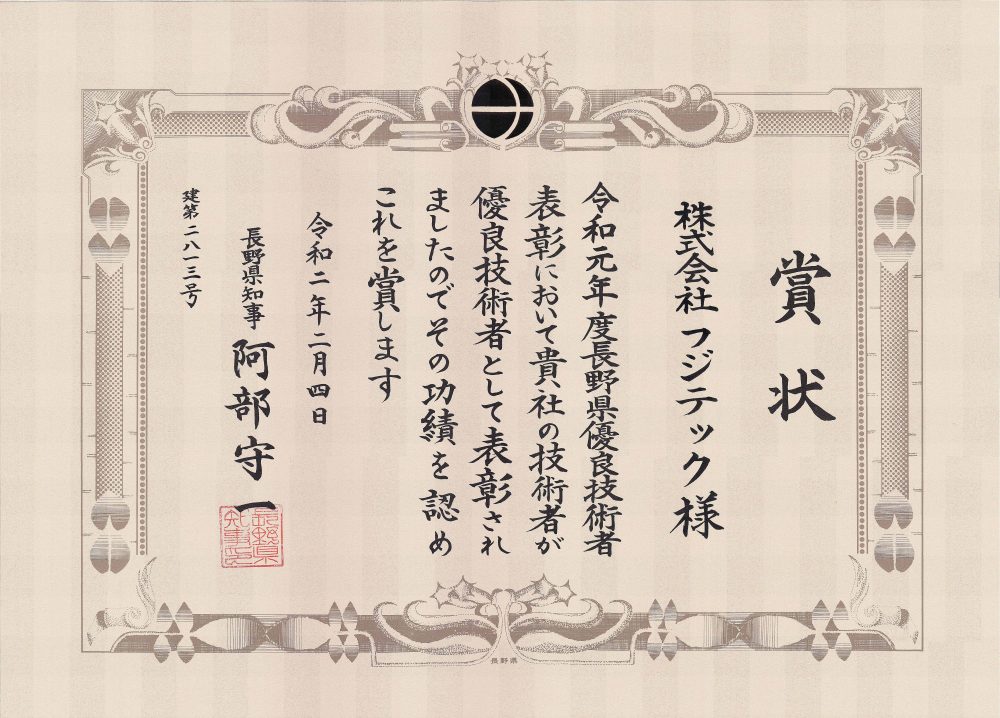 賞状
株式会社 フジテック 様
令和元年度長野県優良技術者
表彰において貴社の技術者が
優良技術者として表彰され
ましたのでその功績を認め
これを賞します
令和二年二月四日
長野県知事 阿部守一
長野県知事印
建第二八一三号
長野県